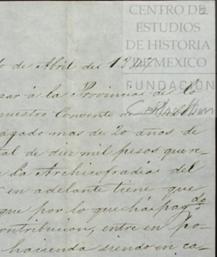 CENTRO DE
ESTUDIOS
DE HISTORIA
DE MEXICO
FUNDACIÓN
de Abril del
á la Provincia de lo
nuestro Convento
pagado mas de 20 años de
tal de diez mil pesos que re
la Archicofradia del
en adelante tiene que
que por lo que há pagdo
contribucion, entre en po
hacienda siendo en ca